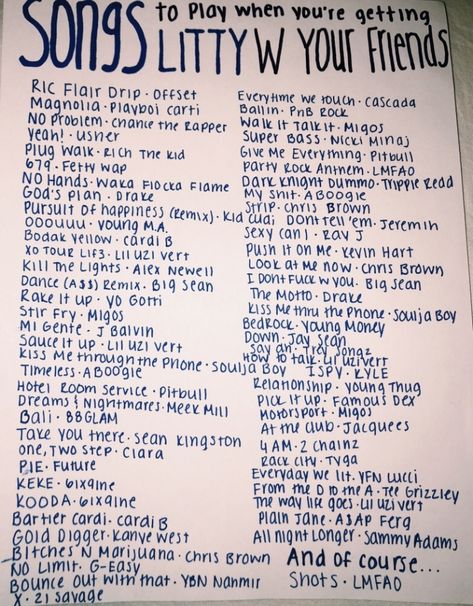 Songs to Play when you're getting
LITTY W Your Friends
RIC Flair Drip · OFFSET
Magnolia · Playboi carti
NO Problem · chance the rapper
yeah! · usher
Plug Walk · Rich The Kid
679 · Fetty wap
NO Hands · Waka Flocka Flame
God's Plan · Drake
Pursuit of happiness (Remix) · Kid Cudi
OOOUUU · young M.A.
Bodak yellow · cardi B
XO TOUR Lif3 · Lil uzi vert
Kill The Lights · Alex Newell
Dance (A$$) Remix · Big Sean
Rake It up · YO Gotti
Stir Fry · Migos
Mi Gente · J Balvin
Sauce it up · Lil uzi vert
Kiss Me through the Phone · Soulja Boy
Timeless · A Boogie
Hotel Room Service · Pitbull
Dreams & Nightmares · Meek Mill
Bali · BBGLAM
Take you there · Sean Kingston
one, Two Step · Ciara
PIE · Future
KEKE · 6ix9ine
KOODA · 6ix9ine
Bartier Cardi · cardi B
Gold Digger · Kanye West
Bitches N Marijuana · Chris Brown
NO Limit · G-Easy
Bounce Out with that · YBN Nahmir
X · 21 Savage
Everytime we touch · Cascada
Ballin · PnB Rock
Walk it Talk it · Migos
Super Bass · Nicki Minaj
Give Me Everything · Pitbull
Party Rock Anthem · LMFAO
Dark Knight Dummo · Trippie Redd
My Shit · A Boogie
Strip · Chris Brown
Don't tell 'em · Jeremih
Sexy Can I · Ray J
Push it on Me · Kevin Hart
Look at Me now · Chris Brown
I Dont Fuck w you · Big Sean
The Motto · Drake
Kiss Me thru the Phone · Soulja Boy
BedRock · Young Money
Down · Jay Sean
Say ah · Trey Songz
How to talk · Lil uzi vert
ISPY · KYLE
Relationship · Young Thug
Pick it up · Famous Dex
Motorsport · Migos
At the club · Jacquees
4 AM · 2 Chainz
Rack City · Tyga
Everyday we lit · YFN Lucci
From the D to the A · Tee Grizzley
The way life goes · Lil uzi vert
Plain Jane · A$AP Ferg
All night Longer · Sammy Adams
And of course...
Shots · LMFAO